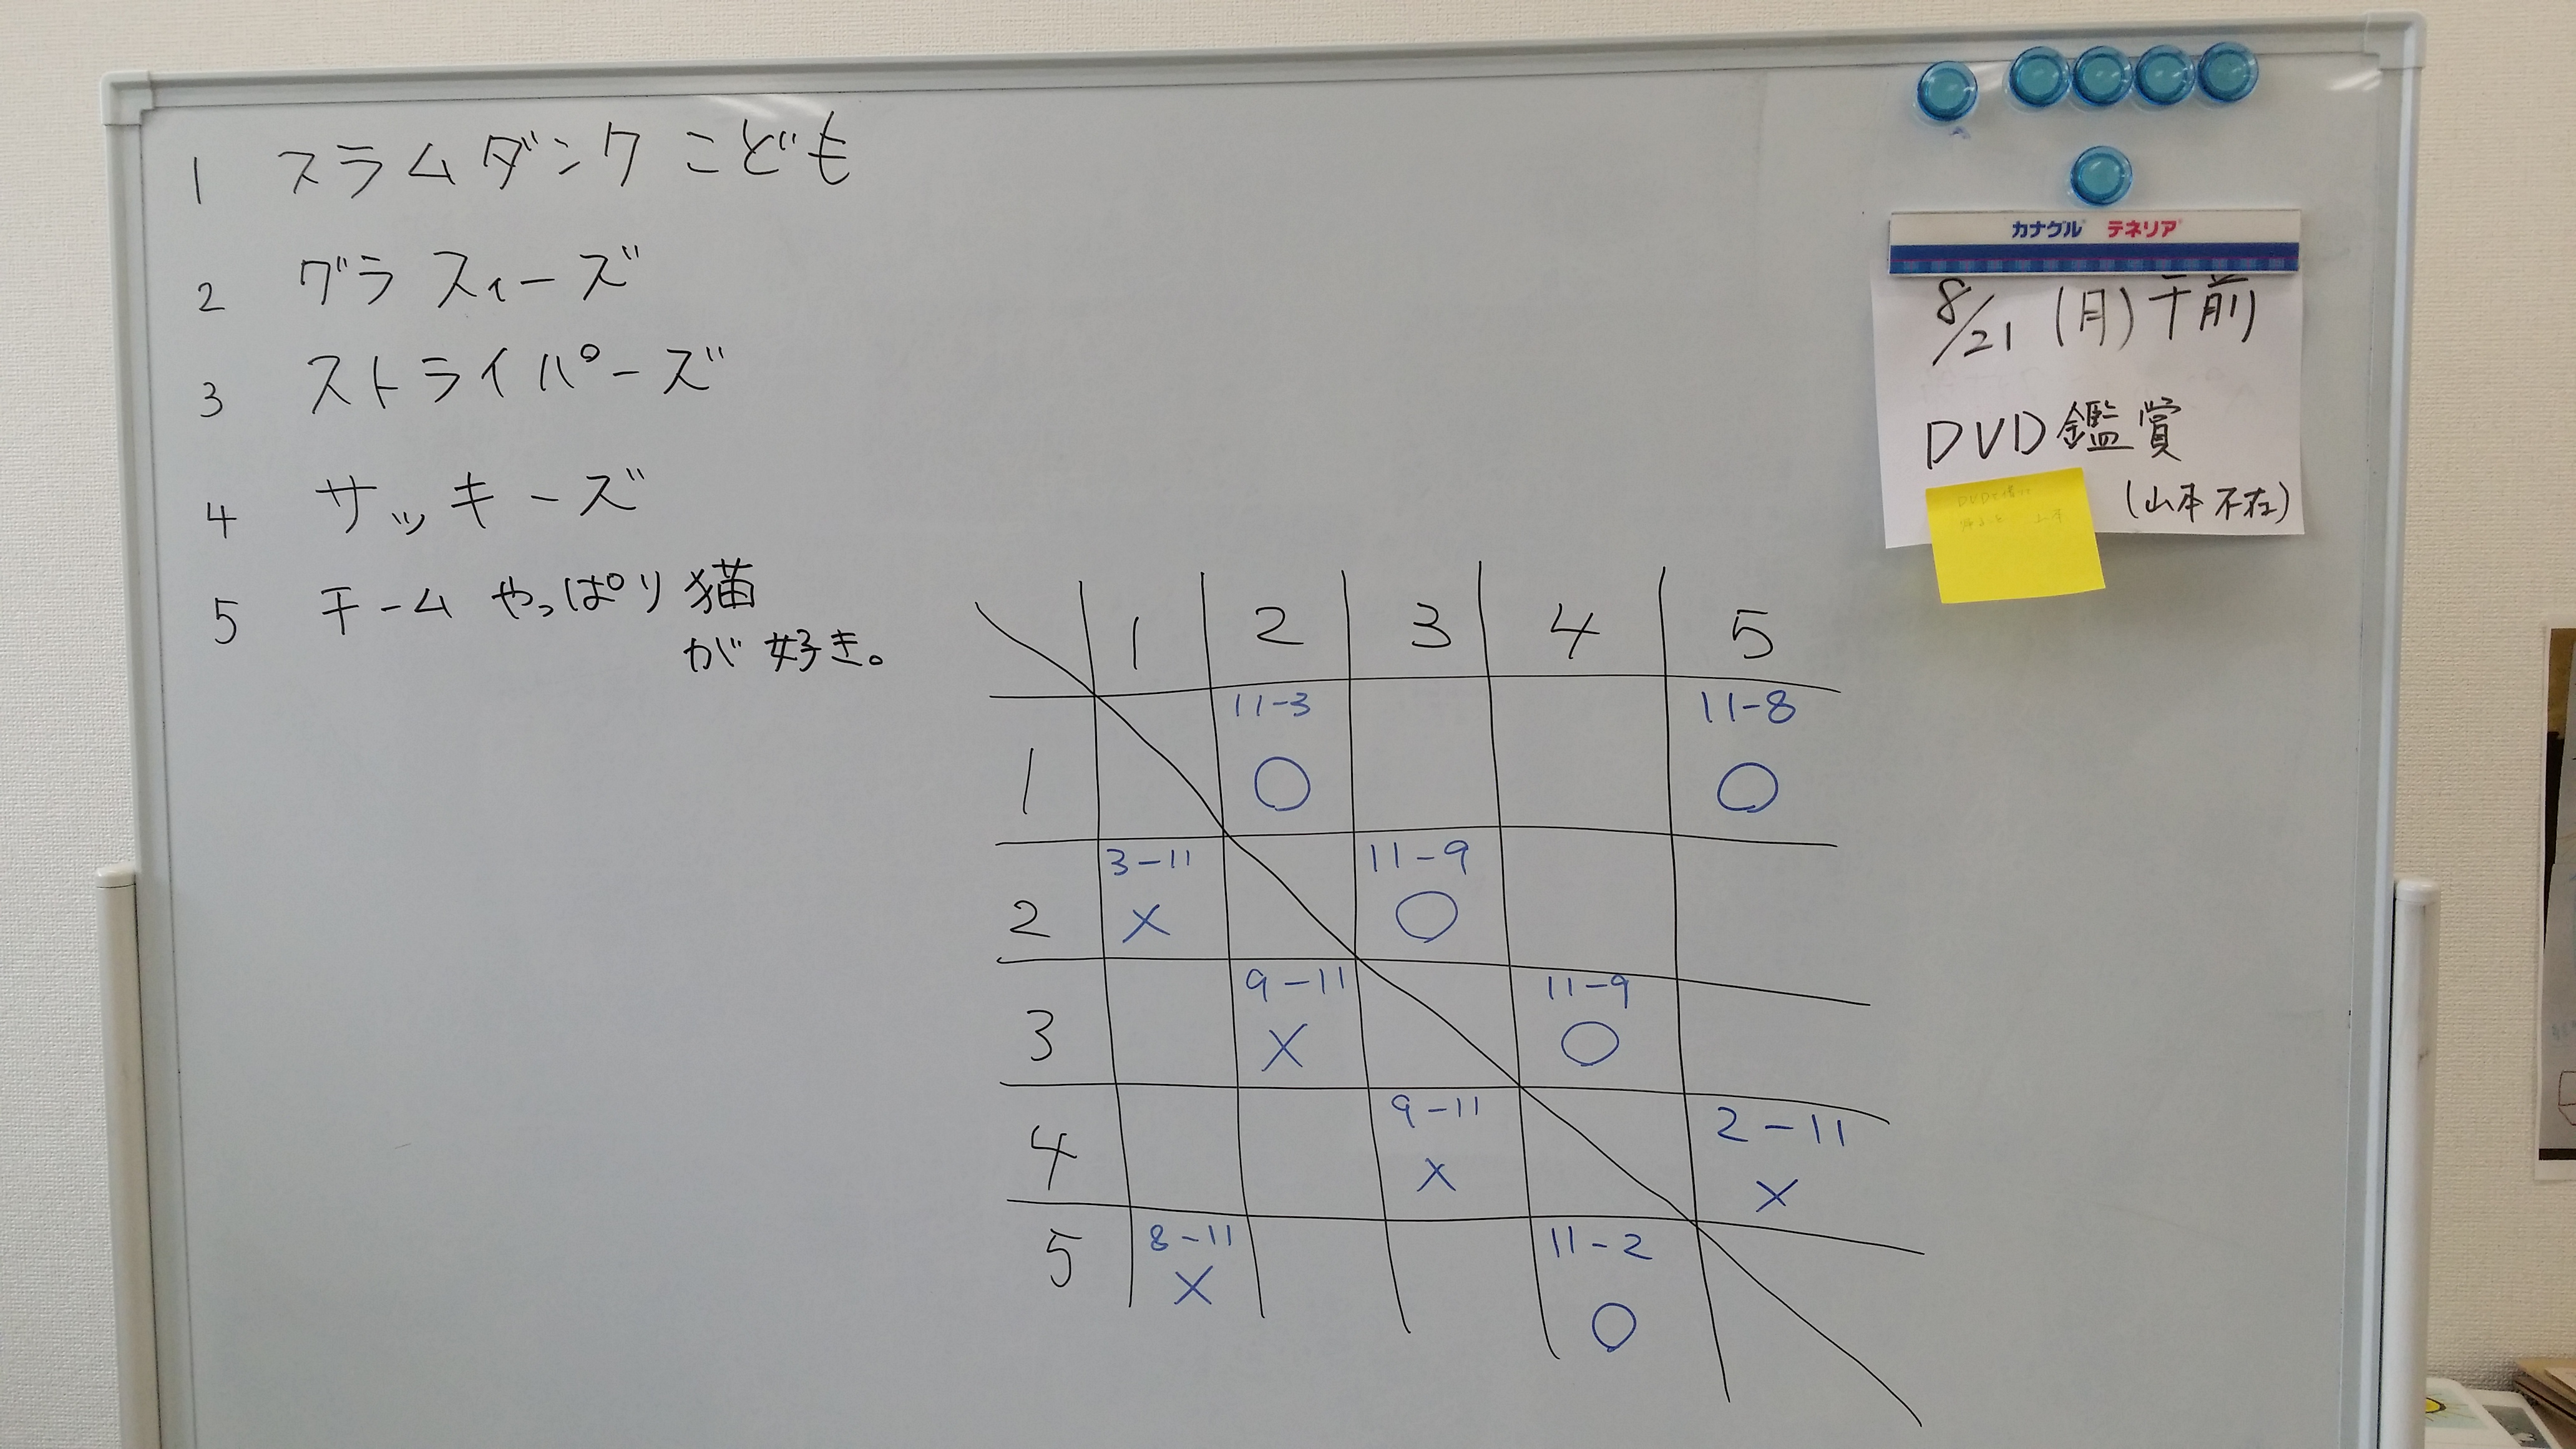 1 スラムダンク こども
2 グラスィーズ
3 ストライパーズ
4 サッキーズ
5 チーム やっぱり 猫
が 好き。
カナグル テネリア
8/21 (月) 午前
DVD鑑賞
(山本不在)
1 2 3 4 5
11-3 11-8
1 ○ ○
3-11 11-9
2 × ○
9-11 11-9
3 × ○
9-11 2-11
4 × ×
8-11 11-2
5 × ○